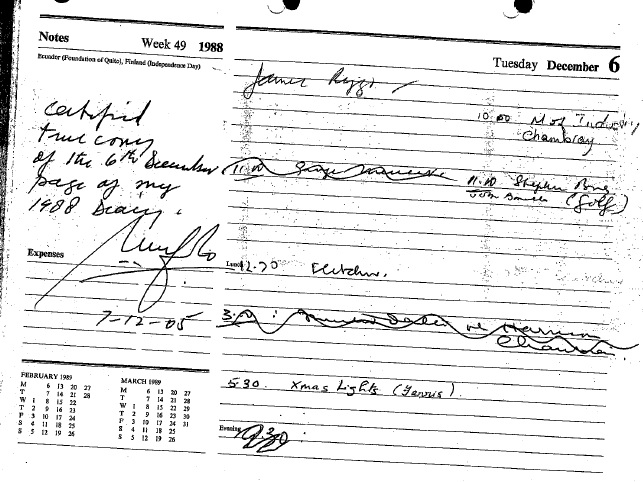 Notes Week 49 1988
Ecuador (Foundation of Quito), Finland (Independence Day)
Certified
true copy
of the 6th December
page of my
1988 Diary.
Expenses
7-12-05
FEBRUARY 1989
M 6 13 20 27
T 7 14 21 28
W 1 8 15 22
T 2 9 16 23
F 3 10 17 24
S 4 11 18 25
S 5 12 19 26
MARCH 1989
M 6 13 20 27
T 7 14 21 28
W 1 8 15 22 29
T 2 9 16 23 30
F 3 10 17 24 31
S 4 11 18 25
S 5 12 19 26
Tuesday December 6
James
10.00 M of Industry
Chambray
11.00
11.00 Stephen
(Golf)
Lunch 12.30 Fletcher.
3.00 : re Harrison
5.30. Xmas Lights (Ferris).
Evening